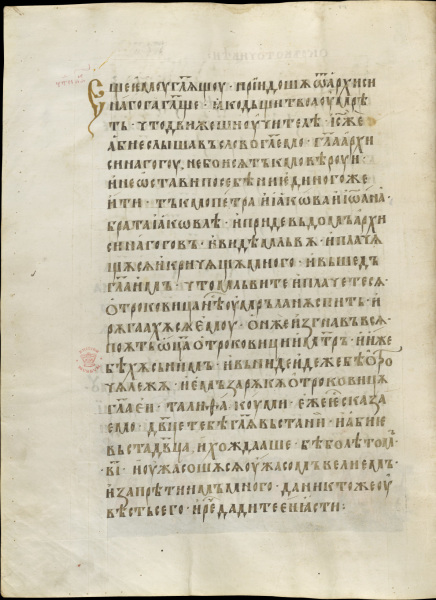 Єще ємоу гл҃ѭщоу · прїидошѫ ѿ архиси
нагога гл҃ще · ꙗко дъщи твоа оумрѣ
ть · что движеши оучителѣ · іс҃ же
абїе слышавъ слово гл҃емо · гл҃а архи
синагогоу · не боисѧ тъкмо вѣроуи ·
и не ѡстави по себѣ ни единого же
ити · тъкмо петра и іакѡва и іѡана
брата іакѡвлѣ · и прїиде въ домъ архи
синагоговъ · и видѣ млъвѫ · и плачѫ
щѫсѧ и кричѧщѧ много · и въшедъ
гл҃а имъ · что млъвите и плачетесѧ ·
отроковица нѣсⷮ оумръла нѫ спить · и
рѫгаахѫсѧ емоу · он же изгнавъ всѧ ·
поѧтъ ѡц҃а отроковици и мт҃ръ · и иже
бѣхѫ съ нимъ · и въниде идеже бѣ ѻтро
чѧ лежѧ · и емъ за рѫкѫ отроковицѫ
гл҃а еи · талиѳа коуми · еже є сказа
емо · дв҃це тебѣ гл҃ѧ въстани · и абїе
въста дв҃ца, и хождааше · бѣ бо лѣтомⷭ
· в҃і · и оужасошѧсѧ оужасомъ велїемъ ·
и запрѣти имъ много · да никтоже оу
вѣсть сего · и рⷱ҃е дадите еи ꙗсти :